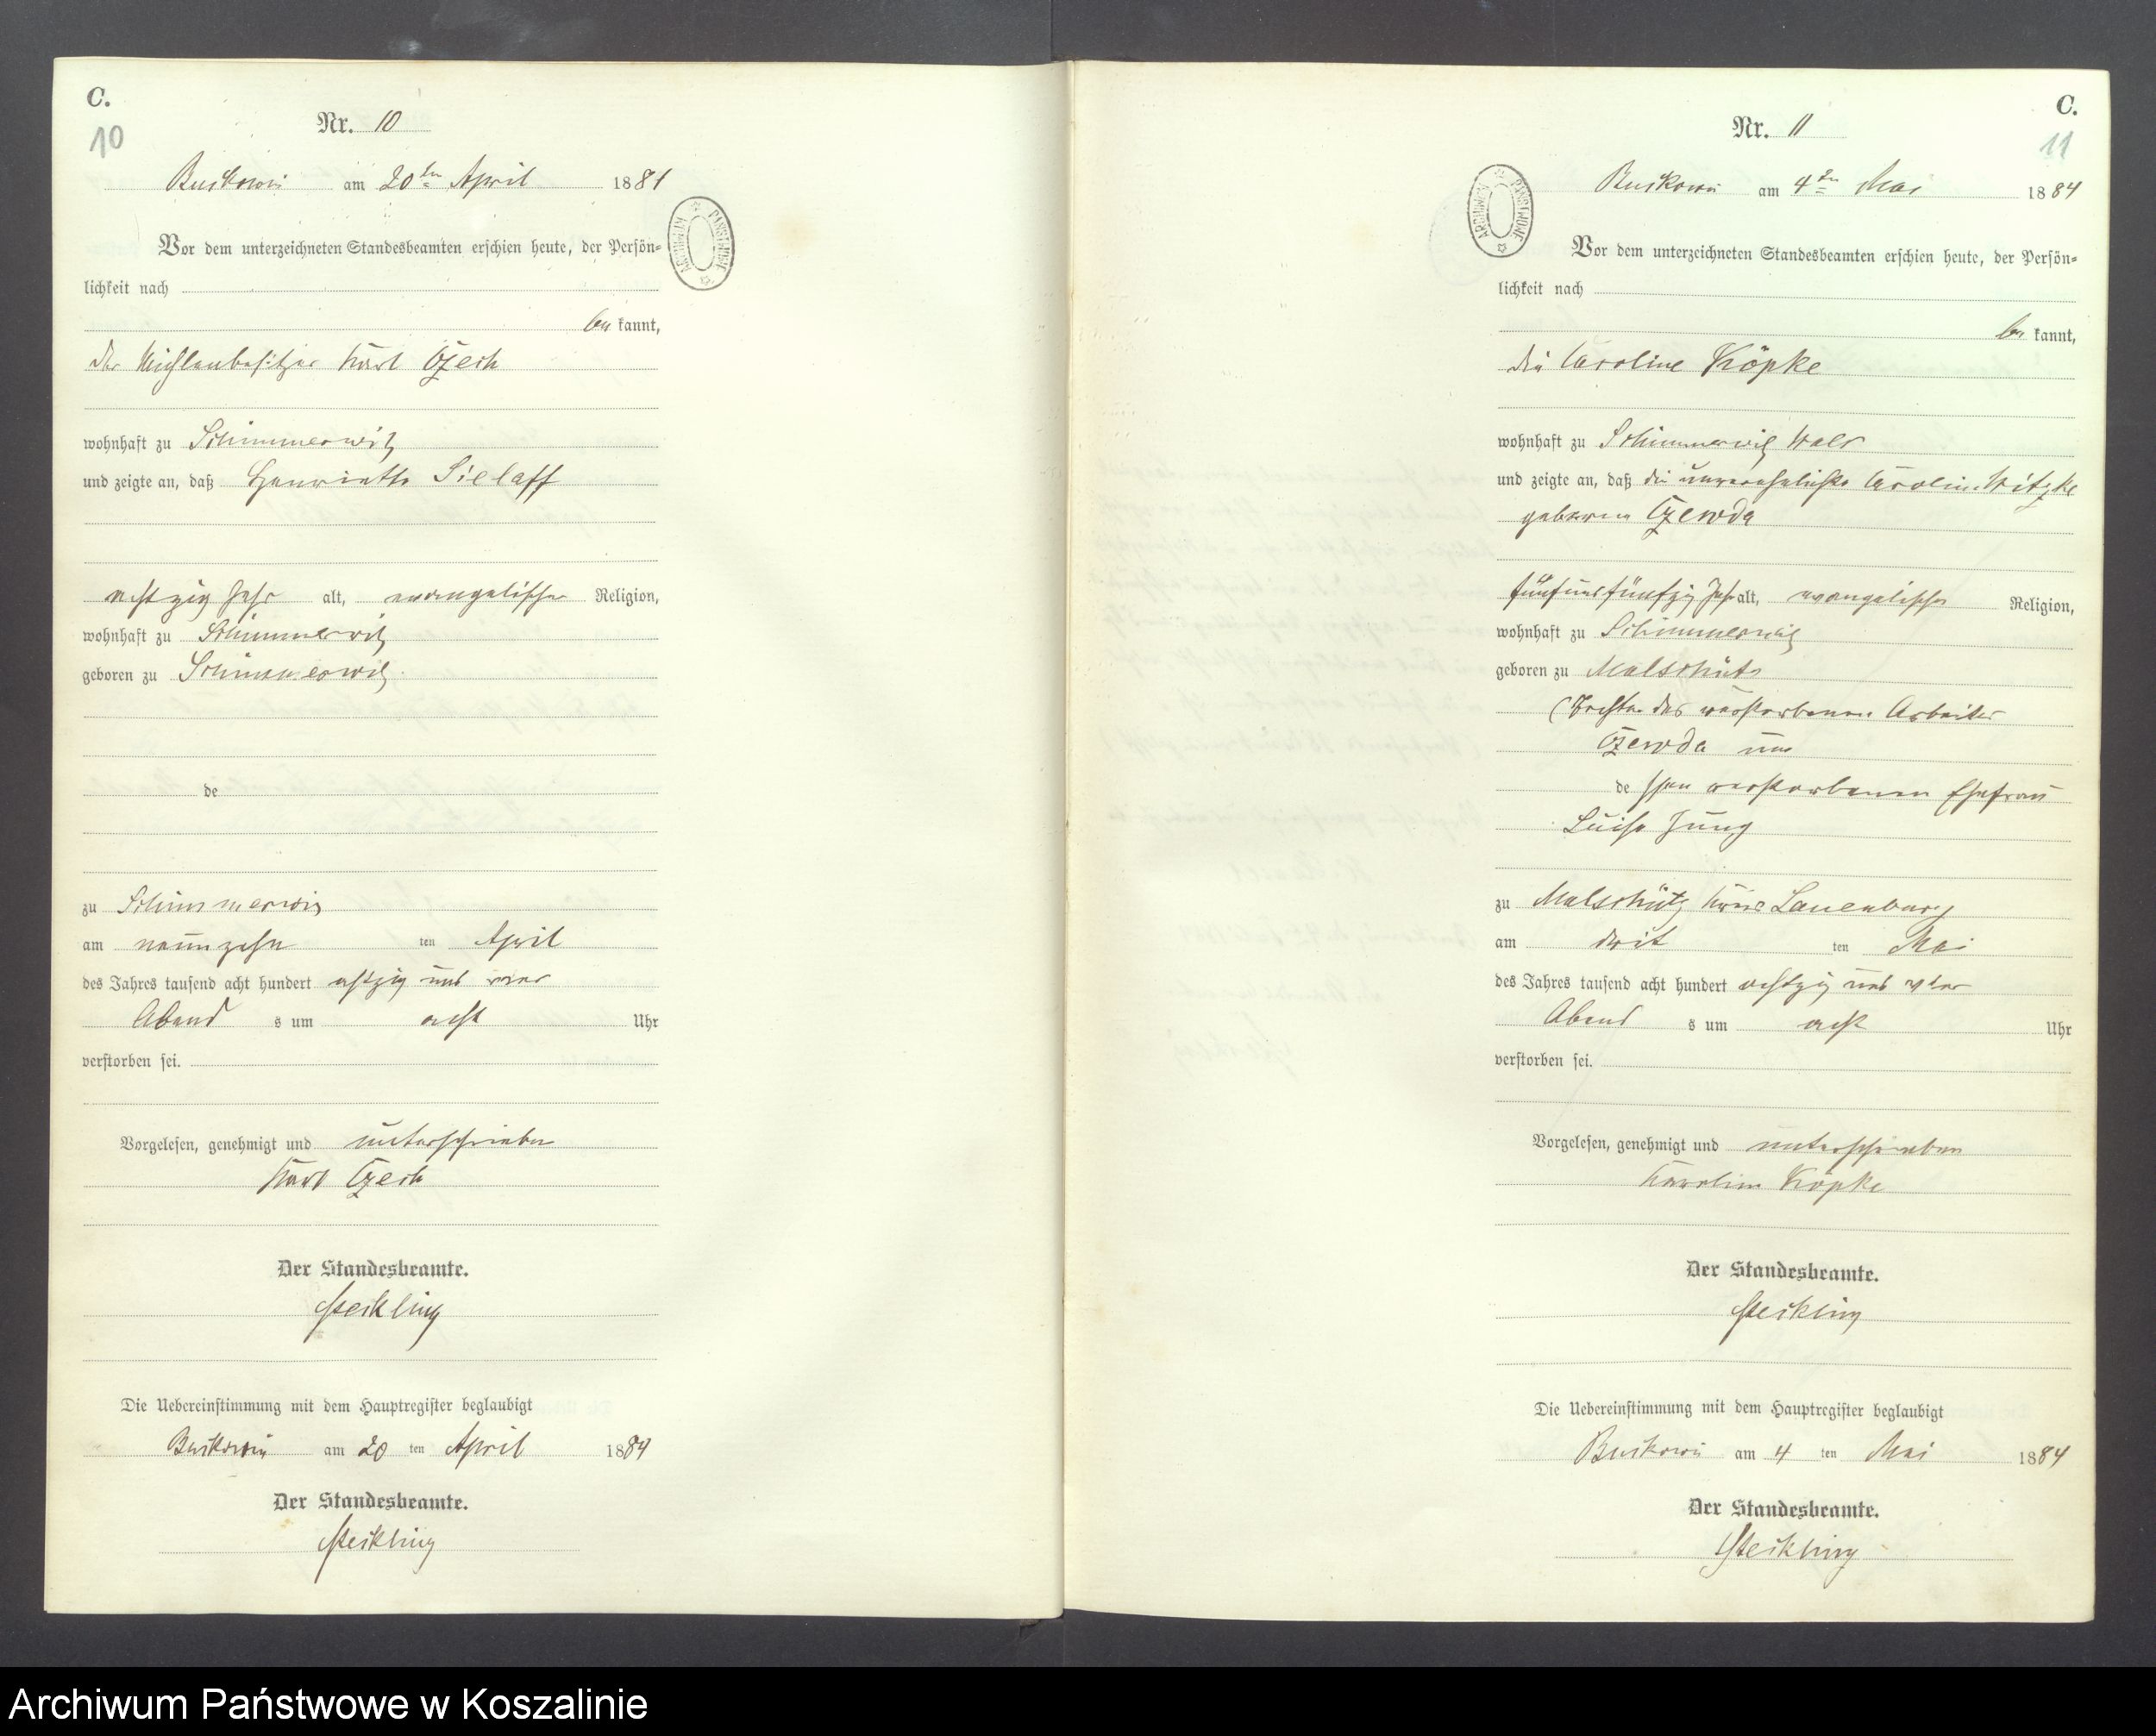 C.
10
Nr. 10
Buckowin am 20ten April 1884
ARCHIWUM PAŃSTWOWE
Vor dem unterzeichneten Standesbeamten erschien heute, der Persön-
lichkeit nach
be kannt,
der Mühlenbesitzer Karl Czech
wohnhaft zu Schimmerwitz
und zeigte an, daß Henriette Sielaff
achtzig Jahr alt, evangelischer Religion,
wohnhaft zu Schimmerwitz
geboren zu Schimmerwitz
de
zu Schimmerwitz
am neunzehn ten April
des Jahres tausend acht hundert achtzig und vier
Abend s um acht Uhr
verstorben sei.
Vorgelesen, genehmigt und unterschrieben
Karl Czech
Der Standesbeamte.
Die Uebereinstimmung mit dem Hauptregister beglaubigt
Buckowin am 20 ten April 1884
Der Standesbeamte.
C.
11
Nr. 11
Buckowin am 4ten Mai 1884
ARCHIWUM PAŃSTWOWE
Vor dem unterzeichneten Standesbeamten erschien heute, der Persön-
lichkeit nach
be kannt,
die Caroline Köpke
wohnhaft zu Schimmerwitz
und zeigte an, daß die Caroline Witzke
geborene Czewda
fünfundfünfzig Jahr alt, evangelischer Religion,
wohnhaft zu Schimmerwitz
geboren zu Malschütz
(Tochter des verstorbenen Arbeiter
Czewda und
de ssen verstorbenen Ehefrau
Luise Jung
zu Malschütz Kreis Lauenburg
am drit ten Mai
des Jahres tausend acht hundert achtzig und vier
Abend s um acht Uhr
verstorben sei.
Vorgelesen, genehmigt und unterschrieben
Karoline Köpke
Der Standesbeamte.
Die Uebereinstimmung mit dem Hauptregister beglaubigt
Buckowin am 4 ten Mai 1884
Der Standesbeamte.
Archiwum Państwowe w Koszalinie